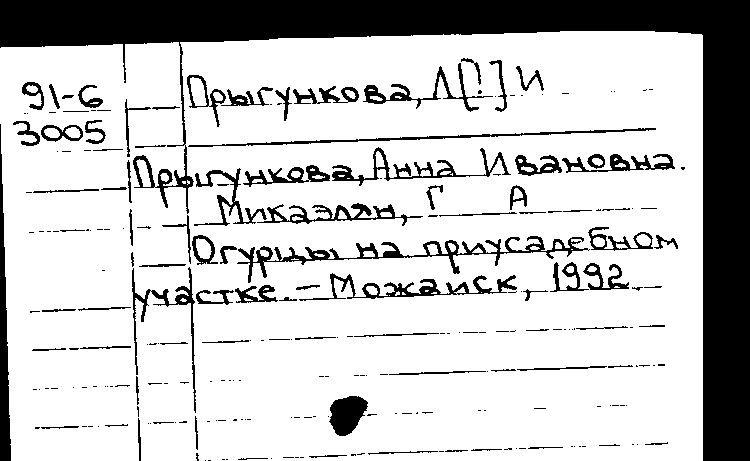 91-6
3005
Прыгункова, Л[!] И
Прыгункова, Анна Ивановна.
Микаэлян, Г А
Огурцы на приусадебном
участке. – Можайск, 1992.